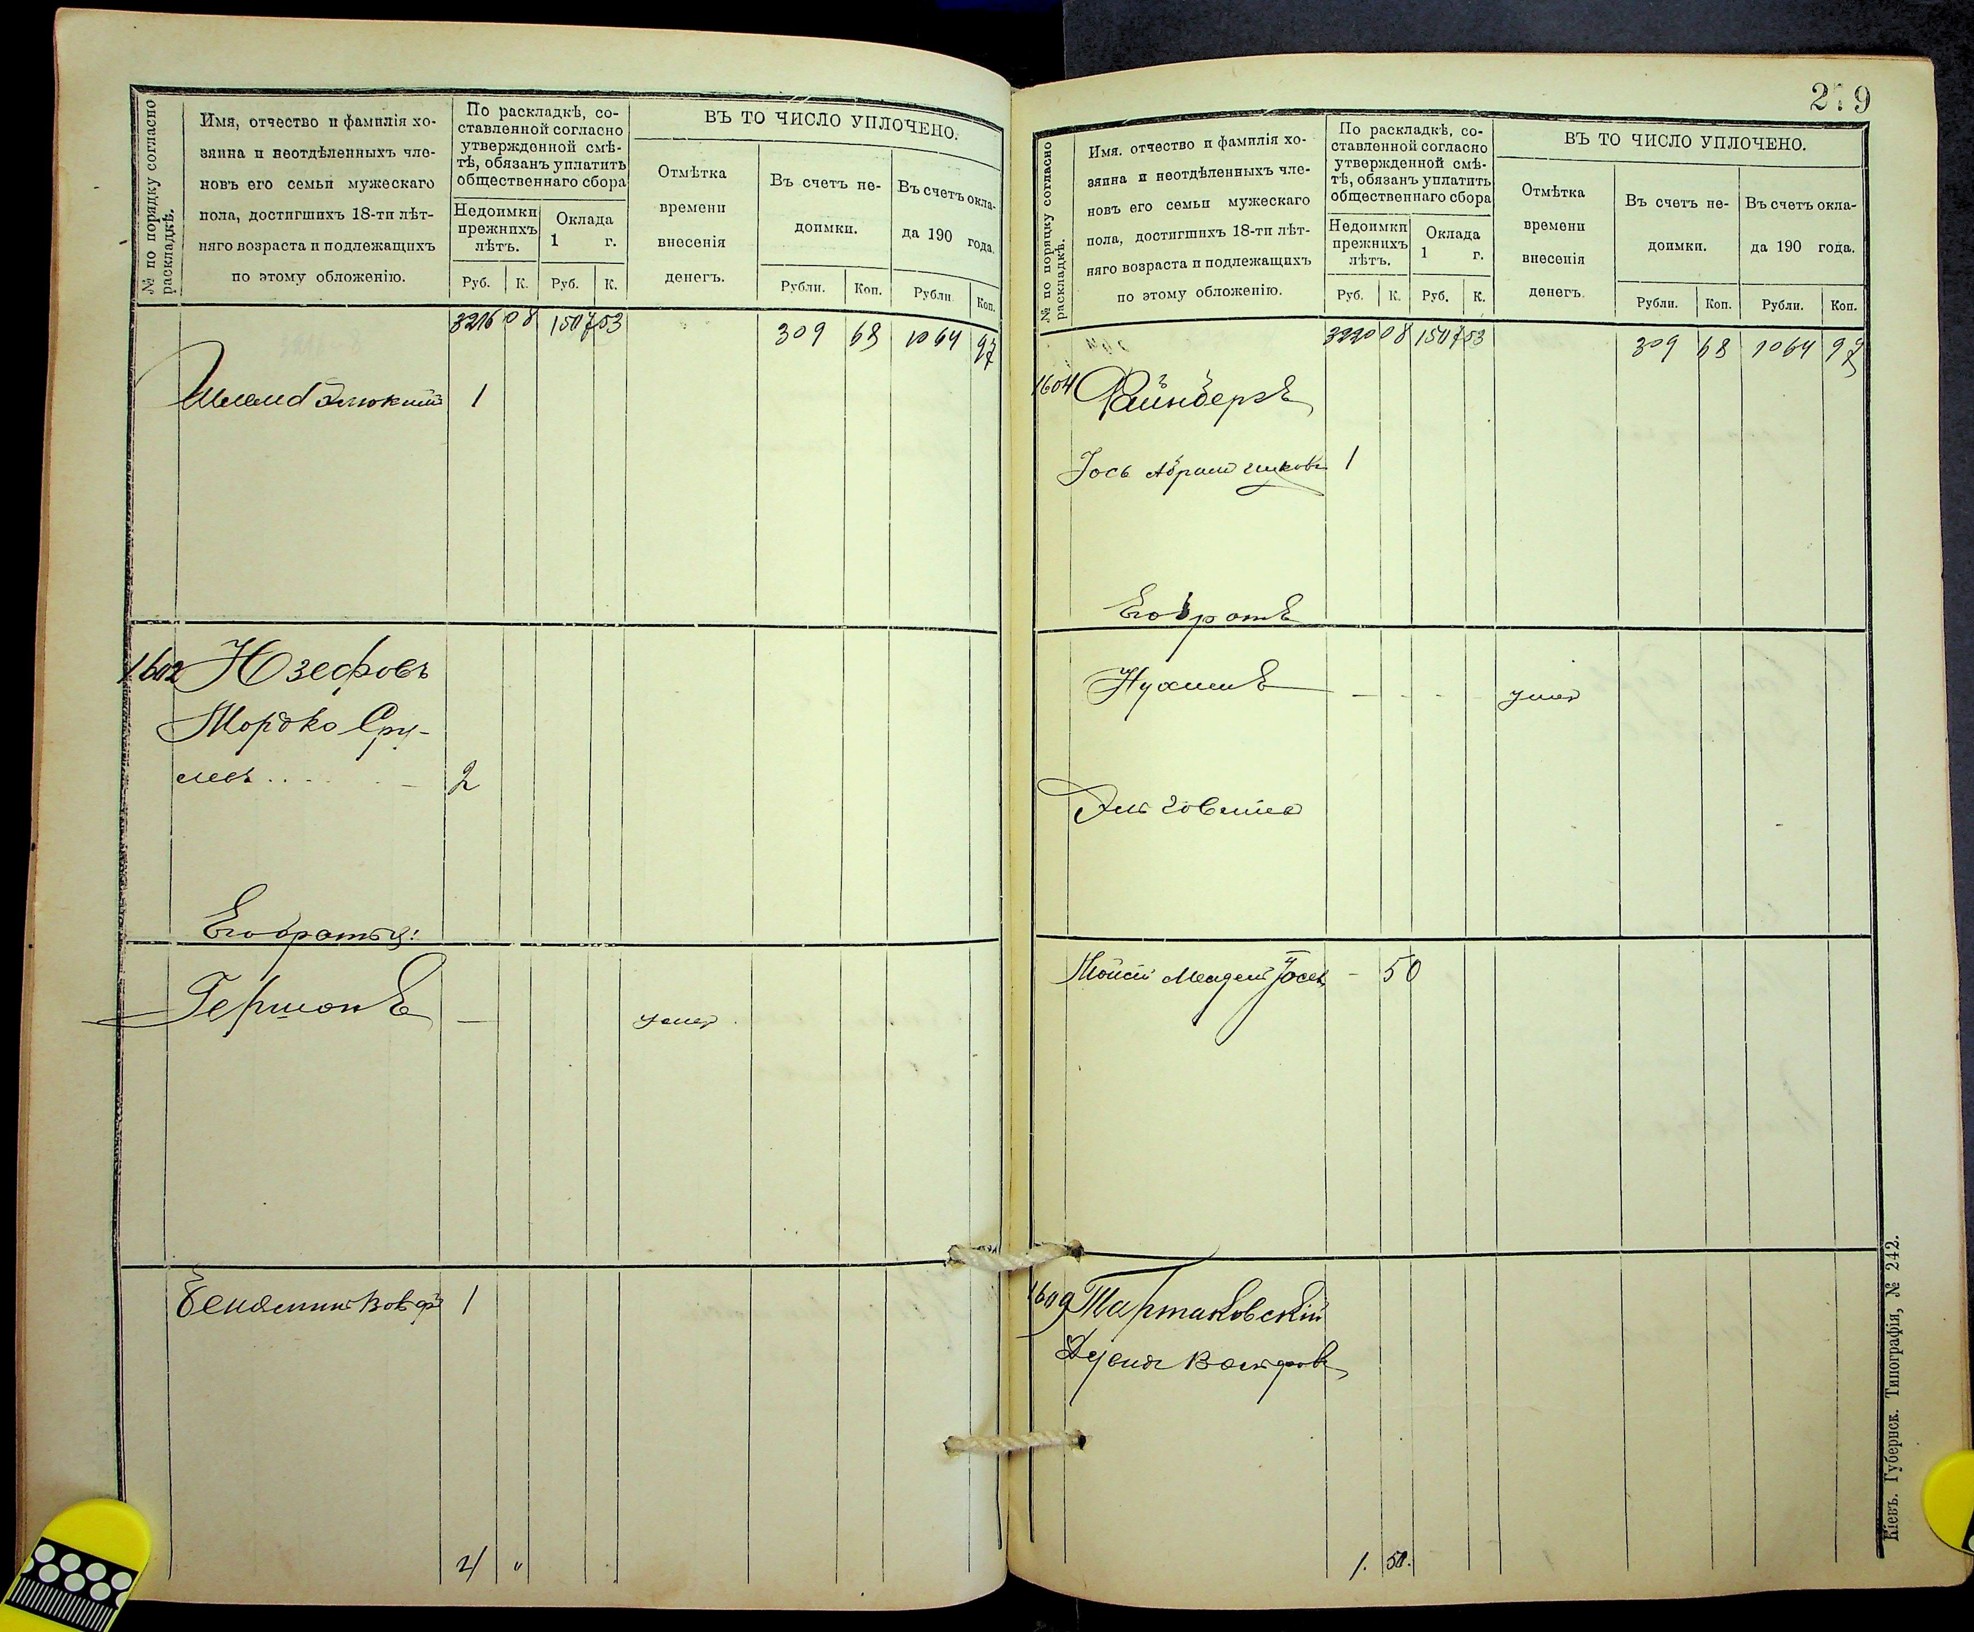 № по порядку согласно
раскладкѣ.
Имя, отчество и фамилія хо-
зяина и неотдѣленныхъ чле-
новъ его семьи мужескаго
пола, достигшихъ 18-ти лѣт-
няго возраста и подлежащихъ
по этому обложенію.
По раскладкѣ, со-
ставленной согласно
утвержденной смѣ-
тѣ, обязанъ уплатить
общественнаго сбора
Недоимки
прежнихъ
лѣтъ.
Оклада
1 г.
Руб. К. Руб. К.
ВЪ ТО ЧИСЛО УПЛОЧЕНО.
Отмѣтка
времени
внесенія
денегъ.
Въ счетъ не-
доимки.
Въ счетъ окла-
да 190 года.
Рубли. Коп. Рубли. Коп.
3216 08 1507 53 309 68 1064 97
1
1602 Юзефовъ
Мордко Сру-
левъ 2
Его братья:
Гершонъ — умер
1
4 "
279
№ по порядку согласно
раскладкѣ.
Имя. отчество и фамилія хо-
зяина и неотдѣленныхъ чле-
новъ его семьи мужескаго
пола, достигшихъ 18-ти лѣт-
няго возраста и подлежащихъ
по этому обложенію.
По раскладкѣ, со-
ставленной согласно
утвержденной смѣ-
тѣ, обязанъ уплатить
общественнаго сбора
Недоимки
прежнихъ
лѣтъ.
Оклада
1 г.
Руб. К. Руб. К.
ВЪ ТО ЧИСЛО УПЛОЧЕНО.
Отмѣтка
времени
внесенія
денегъ.
Въ счетъ не-
доимки.
Въ счетъ окла-
да 190 года.
Рубли. Коп. Рубли. Коп.
3220 08 1507 53 309 68 1064 97
1604 Файнбергъ
Іось 1
Его братъ
Нухимъ — умер
— 50
1609 Тартаковскій
1. 50.
Кіевъ. Губернск. Типографія, № 242.